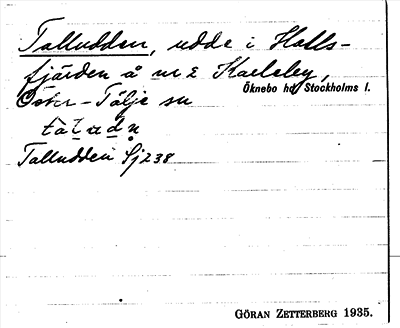 Talludden, udde i Halls-
fjärden å nr 2 Karleby,
Öknebo hd, Stockholms l.
Öster-Tälje sn
Talludden Sjz 38
GÖRAN ZETTERBERG 1935.